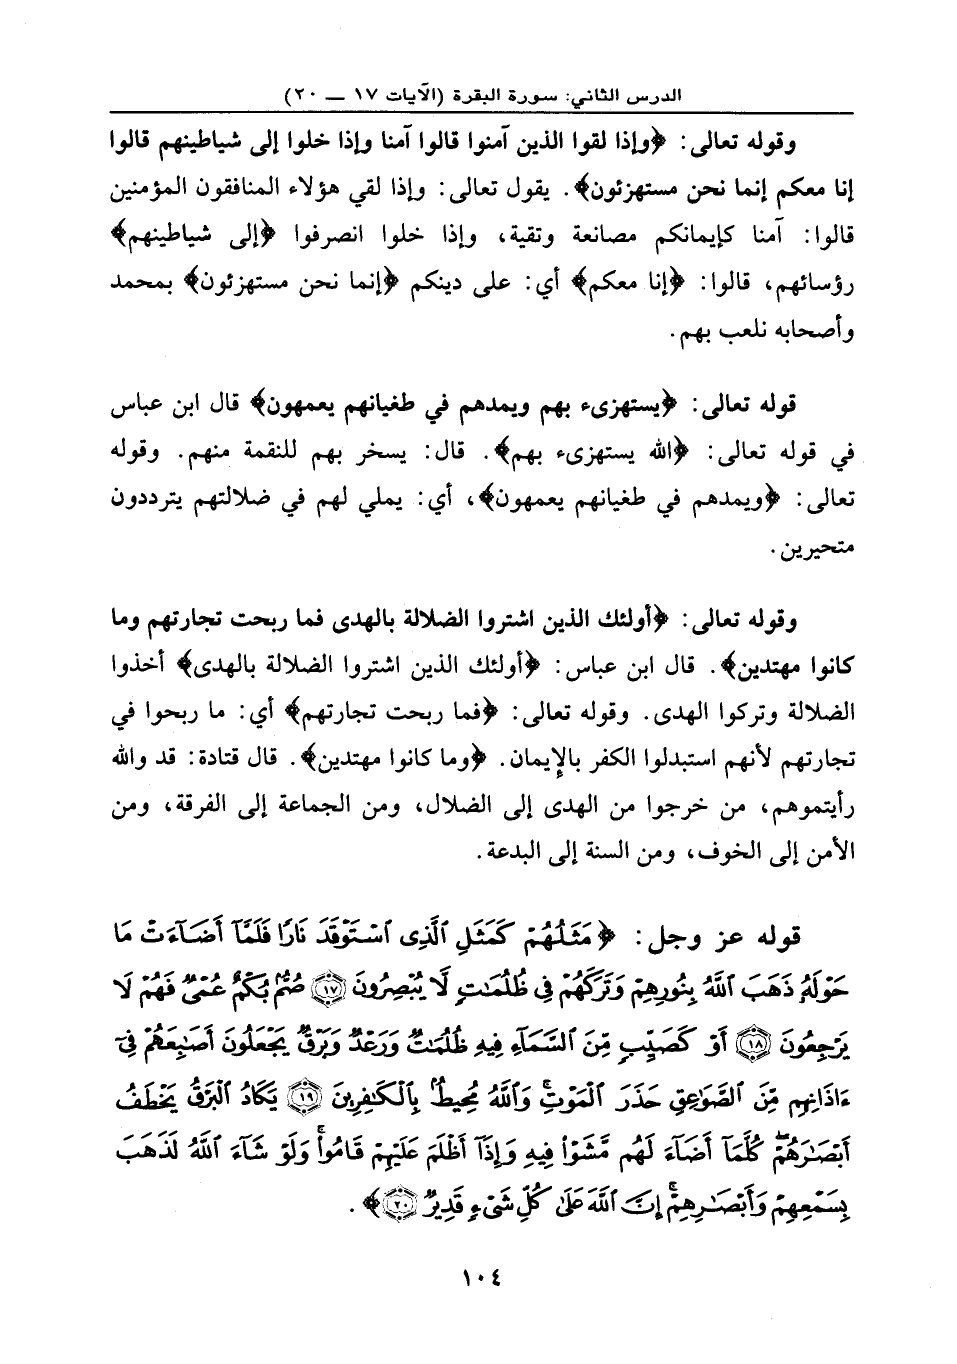 الدرس الثاني: سورة البقرة (الآيات ١٧ — ٢٠)
وقوله تعالى: ﴿وإذا لقوا الذين آمنوا قالوا آمنا وإذا خلوا إلى شياطينهم قالوا
إنا معكم إنما نحن مستهزئون﴾. يقول تعالى: وإذا لقي هؤلاء المنافقون المؤمنين
قالوا: آمنا كإيمانكم مصانعة وتقية، وإذا خلوا انصرفوا ﴿إلى شياطينهم﴾
رؤسائهم، قالوا: ﴿إنا معكم﴾ أي: على دينكم ﴿إنما نحن مستهزئون﴾ بمحمد
وأصحابه نلعب بهم.
قوله تعالى: ﴿يستهزىء بهم ويمدهم في طغيانهم يعمهون﴾ قال ابن عباس
في قوله تعالى: ﴿الله يستهزىء بهم﴾. قال: يسخر بهم للنقمة منهم. وقوله
تعالى: ﴿ويمدهم في طغيانهم يعمهون﴾، أي: يملي لهم في ضلالتهم يترددون
متحيرين.
وقوله تعالى: ﴿أولئك الذين اشتروا الضلالة بالهدى فما ربحت تجارتهم وما
كانوا مهتدين﴾. قال ابن عباس: ﴿أولئك الذين اشتروا الضلالة بالهدى﴾ أخذوا
الضلالة وتركوا الهدى. وقوله تعالى: ﴿فما ربحت تجارتهم﴾ أي: ما ربحوا في
تجارتهم لأنهم استبدلوا الكفر بالإيمان. ﴿وما كانوا مهتدين﴾. قال قتادة: قد والله
رأيتموهم، من خرجوا من الهدى إلى الضلال، ومن الجماعة إلى الفرقة، ومن
الأمن إلى الخوف، ومن السنة إلى البدعة.
قوله عز وجل: ﴿مَثَلُهُمْ كَمَثَلِ ٱلَّذِى ٱسْتَوْقَدَ نَارًا فَلَمَّآ أَضَآءَتْ مَا
حَوْلَهُۥ ذَهَبَ ٱللَّهُ بِنُورِهِمْ وَتَرَكَهُمْ فِى ظُلُمَٰتٍ لَّا يُبْصِرُونَ ۝١٧ صُمٌّۢ بُكْمٌ عُمْىٌ فَهُمْ لَا
يَرْجِعُونَ ۝١٨ أَوْ كَصَيِّبٍ مِّنَ ٱلسَّمَآءِ فِيهِ ظُلُمَٰتٌ وَرَعْدٌ وَبَرْقٌ يَجْعَلُونَ أَصَٰبِعَهُمْ فِىٓ
ءَاذَانِهِم مِّنَ ٱلصَّوَٰعِقِ حَذَرَ ٱلْمَوْتِ ۚ وَٱللَّهُ مُحِيطٌۢ بِٱلْكَٰفِرِينَ ۝١٩ يَكَادُ ٱلْبَرْقُ يَخْطَفُ
أَبْصَٰرَهُمْ ۖ كُلَّمَآ أَضَآءَ لَهُم مَّشَوْا۟ فِيهِ وَإِذَآ أَظْلَمَ عَلَيْهِمْ قَامُوا۟ ۚ وَلَوْ شَآءَ ٱللَّهُ لَذَهَبَ
بِسَمْعِهِمْ وَأَبْصَٰرِهِمْ ۚ إِنَّ ٱللَّهَ عَلَىٰ كُلِّ شَىْءٍ قَدِيرٌ ۝٢٠﴾.
١٠٤